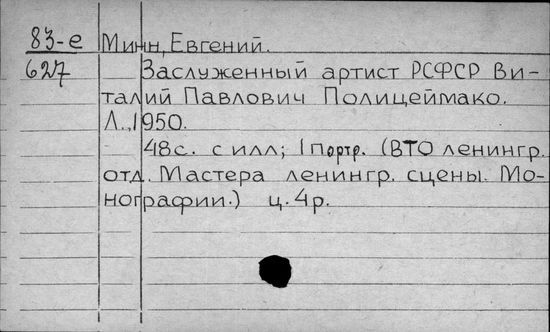 83-е Минн, Евгений.
627 Заслуженный артист РСФСР Ви-
талий Павлович Полицеймако.
Л., 1950.
48с. с илл; 1 портр. (ВТО ленингр.
отд. Мастера ленингр. сцены. Мо-
нографии.) ц. 4р.